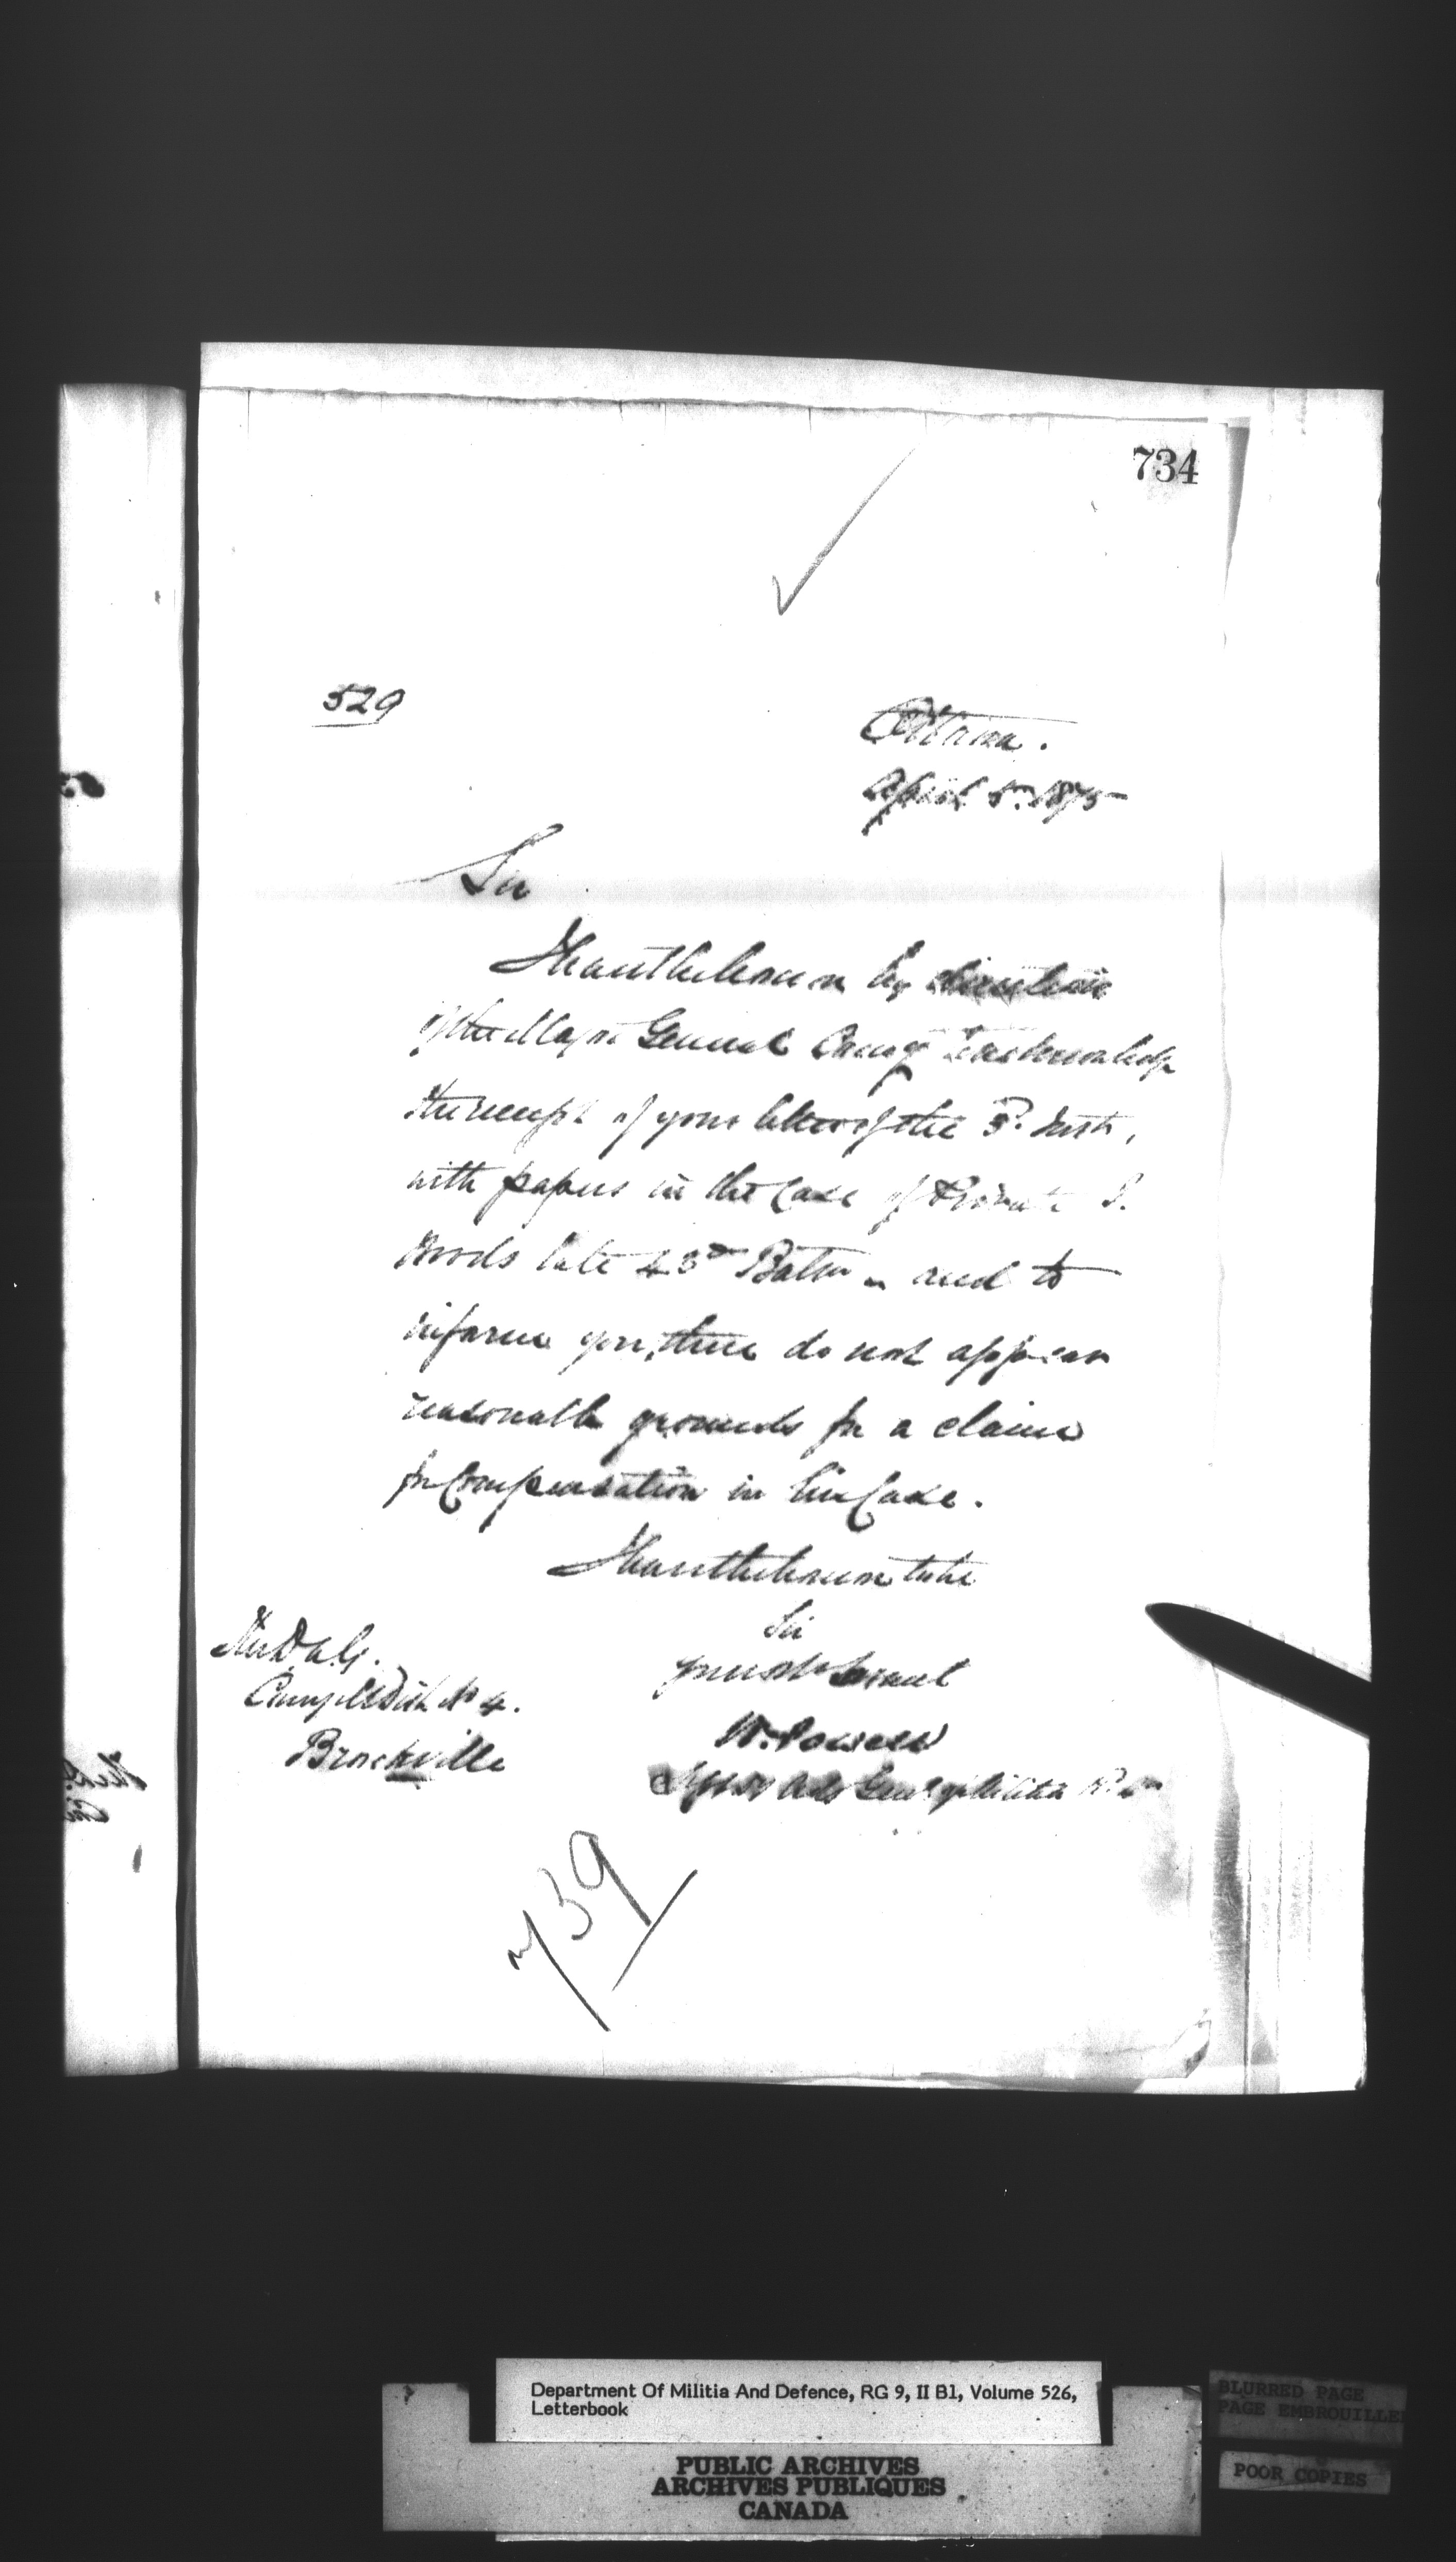 734
529
Ottawa.
April 5th 1875
Sir
I have the honour by direction
of the Major General Comg to acknowledge
the receipt of your letter of the 3d Inst,
with papers in the case of Private
Woods late 43rd Battn and to
inform you, there do not appear
reasonable grounds for a claim
for Compensation in his Case.
I have the honour to be
Sir
your obt Servant
W. Powell
Genl of Militia
The D.A.G.
Comg Mil Dist No 4.
Brockville
739
Department Of Militia And Defence, RG 9, II B1, Volume 526,
Letterbook
PUBLIC ARCHIVES
ARCHIVES PUBLIQUES
CANADA
BLURRED PAGE
PAGE EMBROUILLEE
POOR COPIES